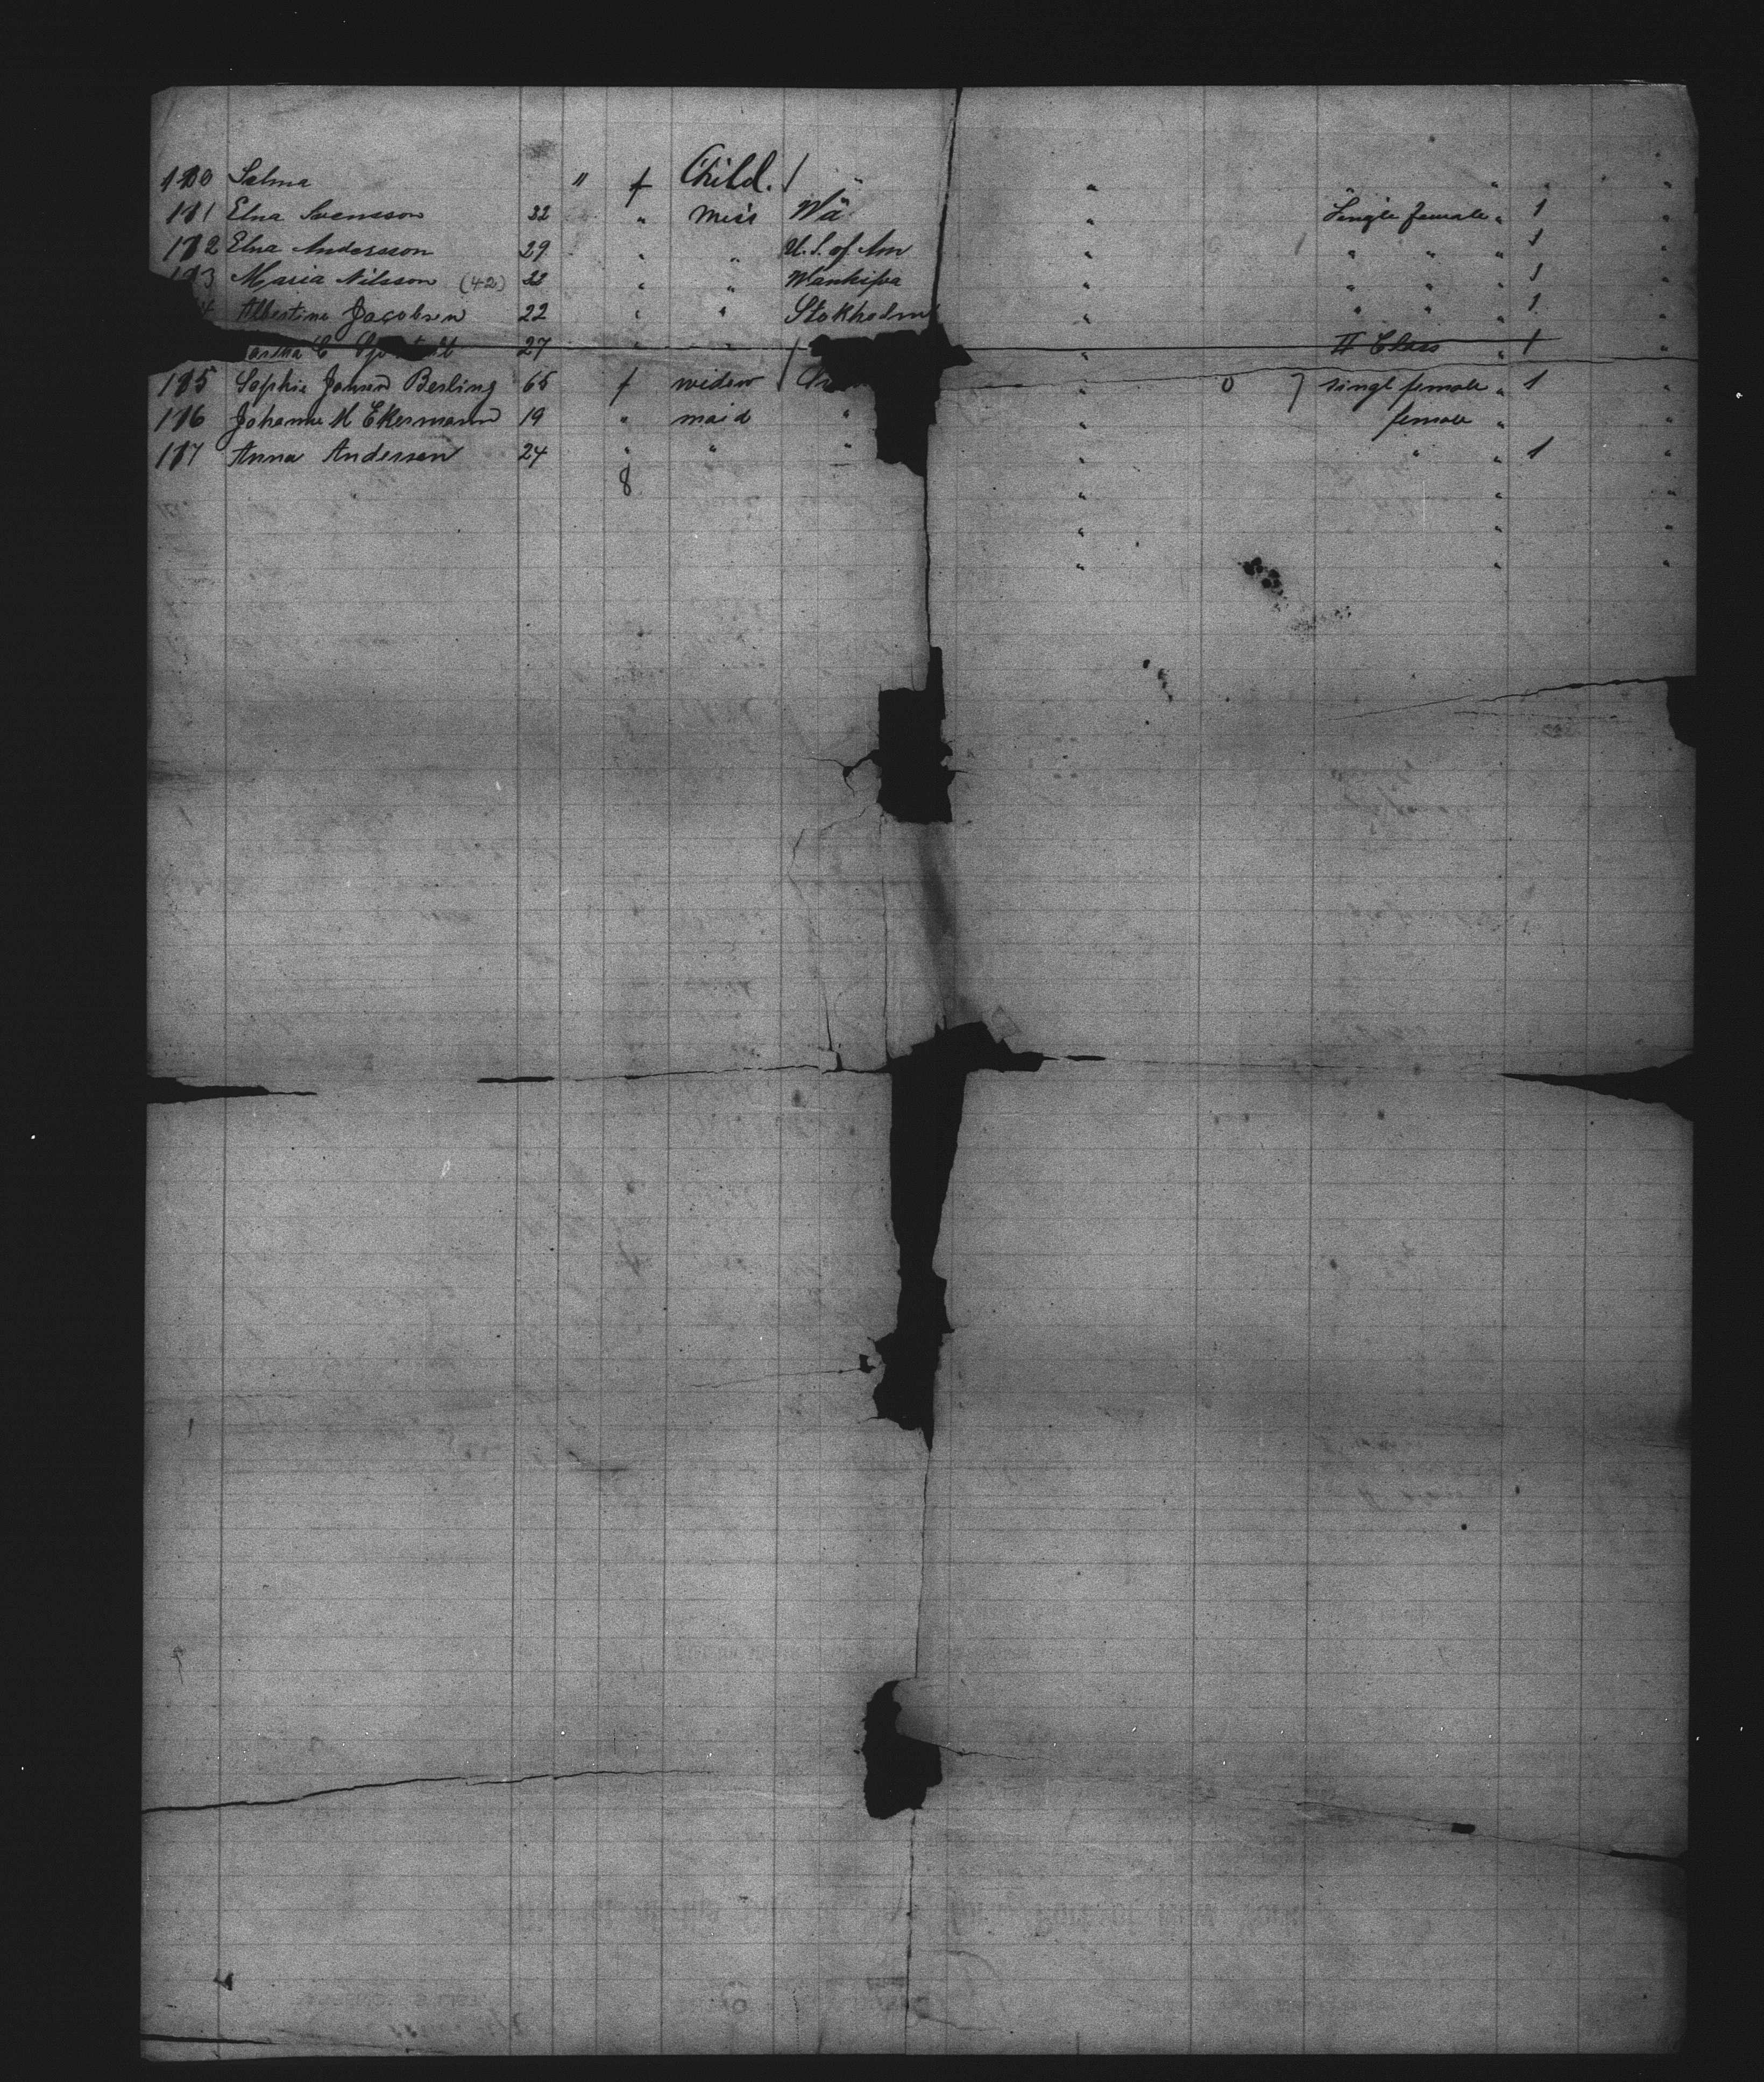 180 Selma " f Child. / " " " " "
181 Elna Svensson 22 " Miss Wä " Single female " 1 "
182 Elna Andersson 29 " " U.S. of Am " " " " 1 "
183 Maria Nilsson (42) 22 " " " " " " 1 "
Albertina Jacobsen 22 " " Stokholm " " " " 1 "
27 " " / " II Class " 1 "
185 Sophie Berling 65 f widow / " 0 7 singl female " 1 "
186 Johanne M Ekermann 19 " maid " " female " "
187 Anna Andersen 24 " " " " " " 1 "
8 " " "
" " "
" " "